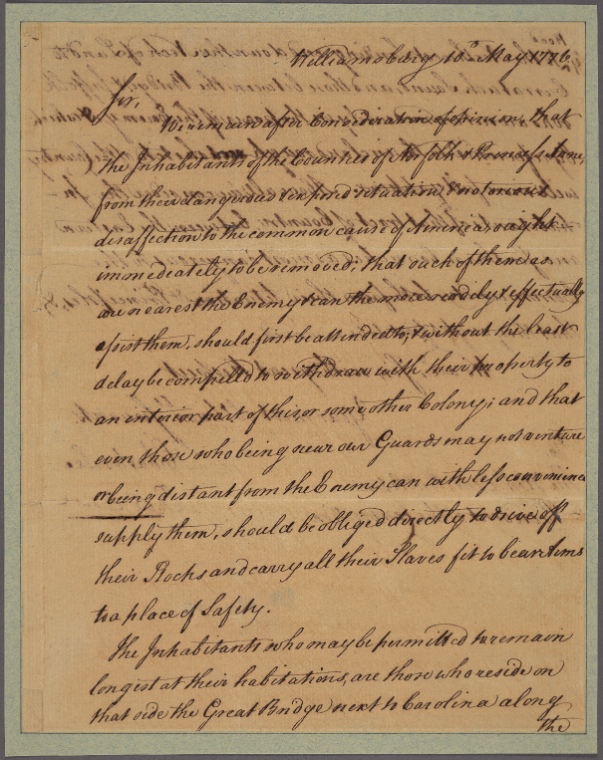 Williamsburg 10th May 1776
Sir,
We remain after Consideration of opinion, that
the Inhabitants of the Counties of Norfolk & Princess Anne,
from their dangerous & exposed situation, & notorious
disaffection to the common cause of America, ought
immediately to be removed; that such of them as
are nearest the Enemy & can the more readily & effectually
assist them, should first be attended to, & without the least
delay be compelled to withdraw with their property to
an interior part of this or some other Colony; and that
even those who being near our Guards may not venture
or being distant from the Enemy can with less convenience
supply them, should be obliged directly to drive off
their Stocks and carry all their Slaves fit to bear Arms
to a place of Safety.
The Inhabitants who may be permitted to remain
longest at their habitations, are those who reside on
that side the Great Bridge next to Carolina along
the